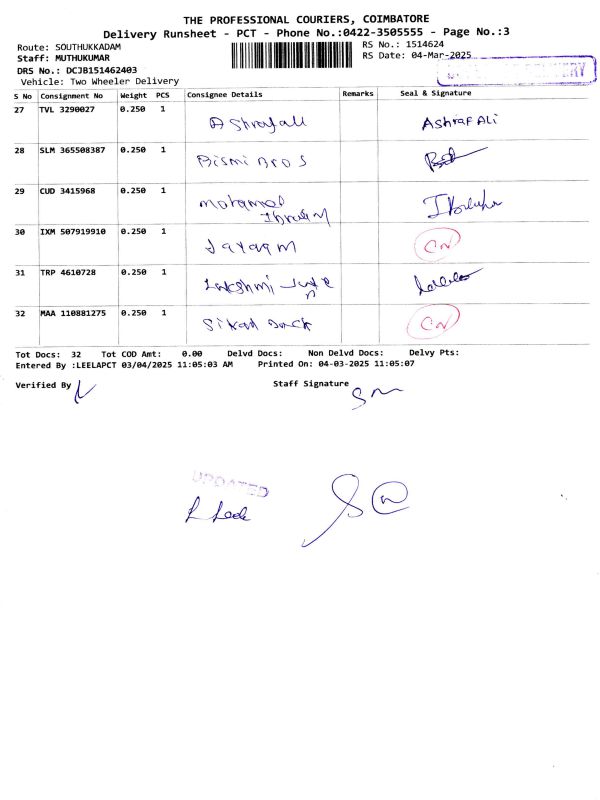 THE PROFESSIONAL COURIERS, COIMBATORE
Delivery Runsheet - PCT - Phone No.:0422-3505555 - Page No.:3
Route: SOUTHUKKADAM RS No.: 1514624
Staff: MUTHUKUMAR RS Date: 04-Mar-2025
DRS No.: DCJB151462403
Vehicle: Two Wheeler Delivery
S No Consignment No Weight PCS Consignee Details Remarks Seal & Signature
27 TVL 3290027 0.250 1 Ashrafali Ashraf Ali
28 SLM 365508387 0.250 1 Bismi Bros
29 CUD 3415968 0.250 1 Mohamed Ibrahim
30 IXM 507919910 0.250 1 Jayaram CN
31 TRP 4610728 0.250 1 Lakshmi
32 MAA 110881275 0.250 1 CN
Tot Docs: 32 Tot COD Amt: 0.00 Delvd Docs: Non Delvd Docs: Delvy Pts:
Entered By :LEELAPCT 03/04/2025 11:05:03 AM Printed On: 04-03-2025 11:05:07
Verified By Staff Signature
UPDATED